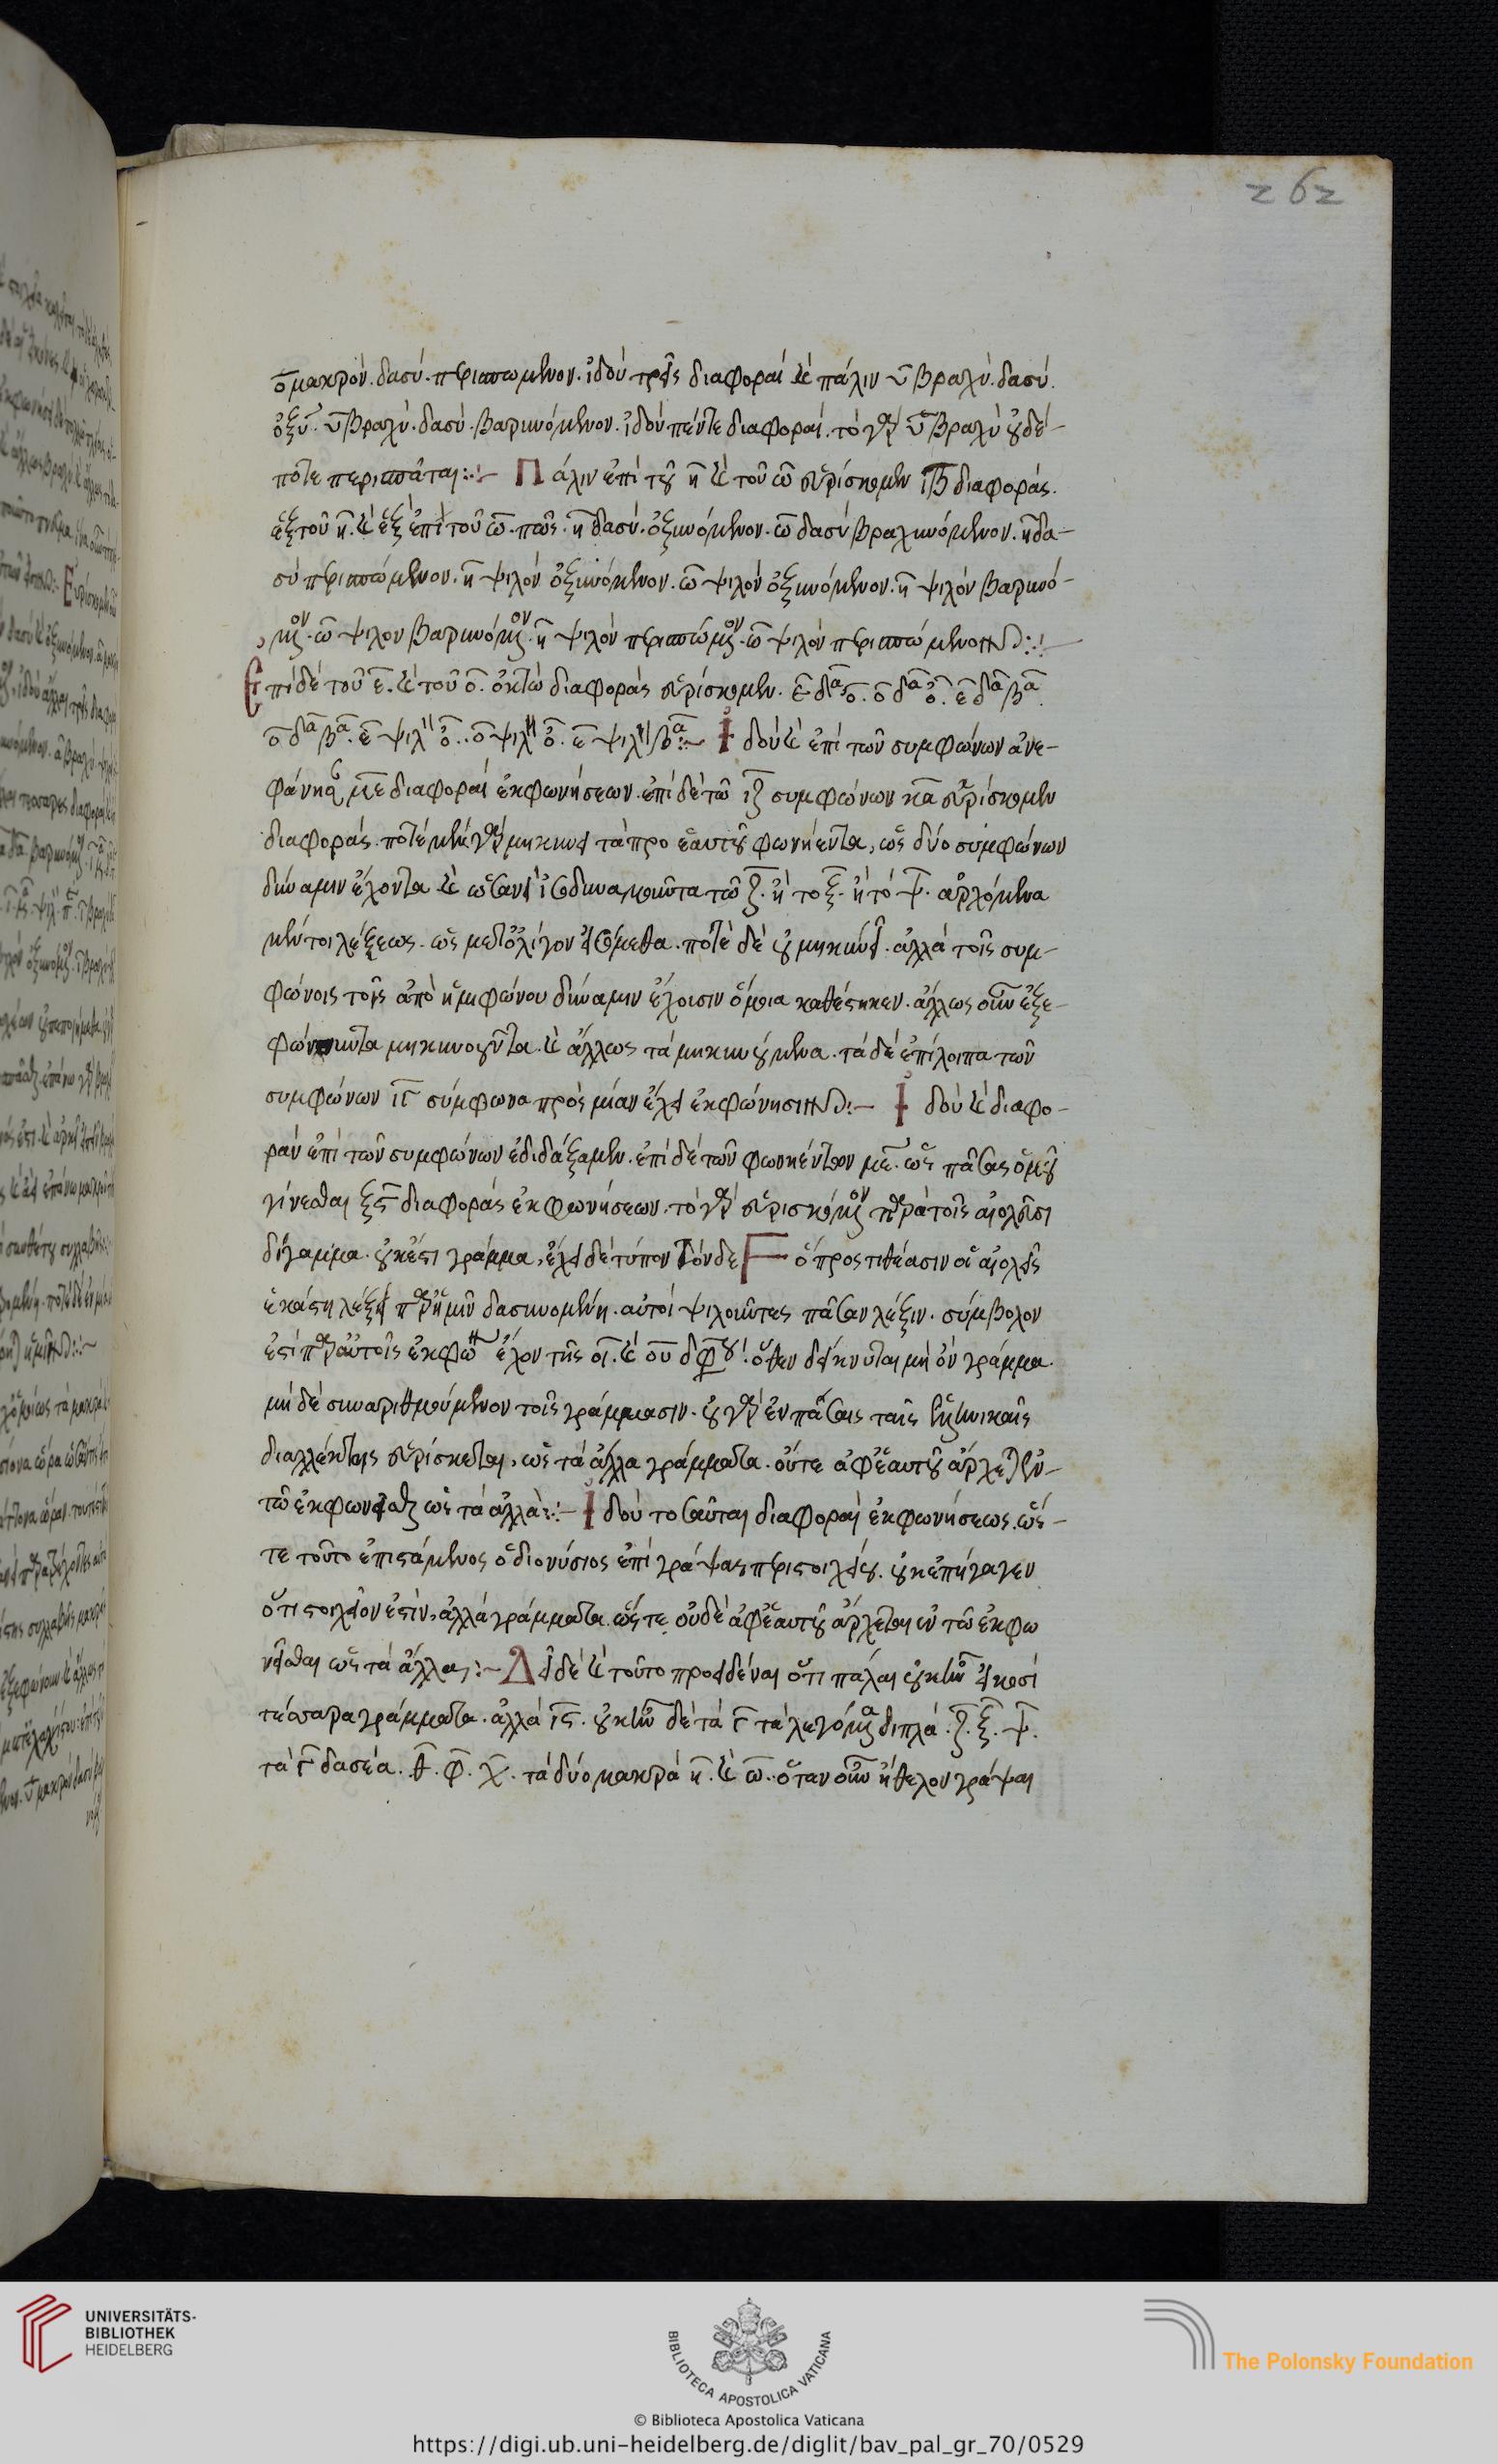 262
ῡ μακρὸν. δασὺ. περισπώμενον. ἰδοὺ τρεῖς διαφοραὶ καὶ πάλιν ῡ βραχὺ. δασὺ.
ὀξὺ. ῡ βραχὺ. δασὺ. βαρυνόμενον. ἰδοὺ πέντε διαφοραὶ. τὸ γὰρ ῡ βραχὺ οὐδέ-
ποτε περισπᾶται:·- Πάλιν ἐπὶ τοῦ η̄ καὶ τοῦ ω̄ εὑρίσκομεν ιβ̄ διαφοράς.
ἓξ τοῦ η̄. καὶ ἓξ ἐπὶ τοῦ ω̄. πῶς. η̄ δασὺ. ὀξυνόμενον. ω̄ δασὺ βραχυνόμενον. η̄ δα-
σὺ περισπώμενον. η̄ ψιλὸν ὀξυνόμενον. ω̄ ψιλὸν ὀξυνόμενον. η̄ ψιλὸν βαρυνό-
μενον. ω̄ ψιλον βαρυνόμενον. η̄ ψιλὸν περισπώμενον. ω̄ ψιλὸν περισπώμενον:·-
Ἐπὶ δὲ τοῦ ε̄. καὶ τοῦ ο̄. ὀκτὼ διαφορὰς εὑρίσκομεν. ε̄ δα ο̄. ο̄ δα ο̄. ε̄ δα βα.
ο̄ δα βα. ε̄ ψιλ ο̄. ο̄ ψιλ ο̄. ε̄ ψιλ βα:- Ἰδοὺ καὶ ἐπὶ τῶν συμφώνων ἀνε-
φάνησαν με̄ διαφοραὶ ἐκφωνήσεων. ἐπὶ δὲ τῶν ιζ̄ συμφώνων κᾱ εὑρίσκομεν
διαφοράς. ποτὲ μὲν γὰρ μηκύνει τὰ προ ἑαυτοῦ φωνήεντα, ὡς δύο συμφώνων
δύναμιν ἔχοντα καὶ ὡσανεὶ ἰσοδυναμοῦντα τῶ ζ̄. ἢ το ξ̄. ἢ τὸ ψ̄. ἀρχόμενα
μέντοι λέξεως. ὡς μετ ὀλίγον εἰσόμεθα. ποτὲ δὲ οὐ μηκύνει. ἀλλὰ τοῖς συμ-
φώνοις τοῖς ἀπὸ ἡμιφώνου δύναμιν ἔχουσιν ὅμοια καθέστηκεν. ἄλλως οὖν ἐξε-
φώνουντα μηκυνοῦντα. καὶ ἄλλως τὰ μηκυνούμενα. τὰ δὲ ἐπίλοιπα τῶν
συμφώνων ις̄ σύμφωνα πρὸς μίαν ἔχει ἐκφώνησιν:- Ἰδοὺ καὶ διαφο-
ρὰν ἐπὶ τῶν συμφώνων ἐδιδάξαμεν. ἐπὶ δὲ τῶν φωνηέντων με̄. ὡς πάσας ὁμοῦ
γίνεσθαι ξς̄ διαφορὰς ἐκφωνήσεων. τὸ γὰρ εὑρισκόμενον παρὰ τοῖς αἰολεῦσι
δίγαμμα. οὐκ ἔστι γράμμα. ἔχει δὲ τύπον τόνδε Ϝ ὃ προστιθέασιν οἱ αἰολεῖς
ἑκάστη λέξει παρ ἡμῖν δασυνομένη. αὐτοὶ ψιλοῦντες πᾶσαν λέξιν. σύμβολον
ἐστὶ παρ αὐτοῖς ἐκφω ἔχον τῆς οι. καὶ ου διφθόγγου. ὅθεν δείκνυται μὴ ὂν γράμμα.
μὴ δὲ συναριθμούμενον τοῖς γράμμασιν. οὐ γὰρ ἐν πάσαις ταῖς ἑλληνικαῖς
διαλλέκτοις εὑρίσκεται, ὡς τὰ ἄλλα γράμματα. οὔτε ἀφ ἑαυτοῦ ἄρχεται ἐν
τῶ ἐκφωνεῖσθαι ὡς τὰ ἀλλὰ:·- Ἰδοὺ τοσαῦται διαφοραὶ ἐκφωνήσεως. ὥσ-
τε τοῦτο ἐπιστάμενος ὁ διονύσιος ἐπὶ γράψας περι στοιχείου. οὐκ ἐπήγαγεν
ὅτι στοιχεῖον ἐστὶν, ἀλλὰ γράμματα. ὥστε οὐδὲ ἀφ ἑαυτοῦ ἄρχεται ἐν τῶ ἐκφω
νεῖσθαι ὡς τὰ ἄλλα:- Δεῖ δὲ καὶ τοῦτο προειδέναι ὅτι πάλαι οὐκ ἦν εἰκοσι
τέσσαρα γράμματα. ἀλλὰ ις̄. οὐκ ἦν δὲ τὰ γ̄ τὰ λεγόμενα διπλὰ. ζ̄. ξ̄. ψ̄.
τὰ γ̄ δασέα. θ̄. φ̄. χ̄. τὰ δύο μακρὰ η̄. καὶ ω̄. ὅταν οὖν ἤθελον γράψαι
UNIVERSITÄTS-
BIBLIOTHEK
HEIDELBERG
BIBLIOTECA APOSTOLICA VATICANA
The Polonsky Foundation
© Biblioteca Apostolica Vaticana
https://digi.ub.uni-heidelberg.de/diglit/bav_pal_gr_70/0529